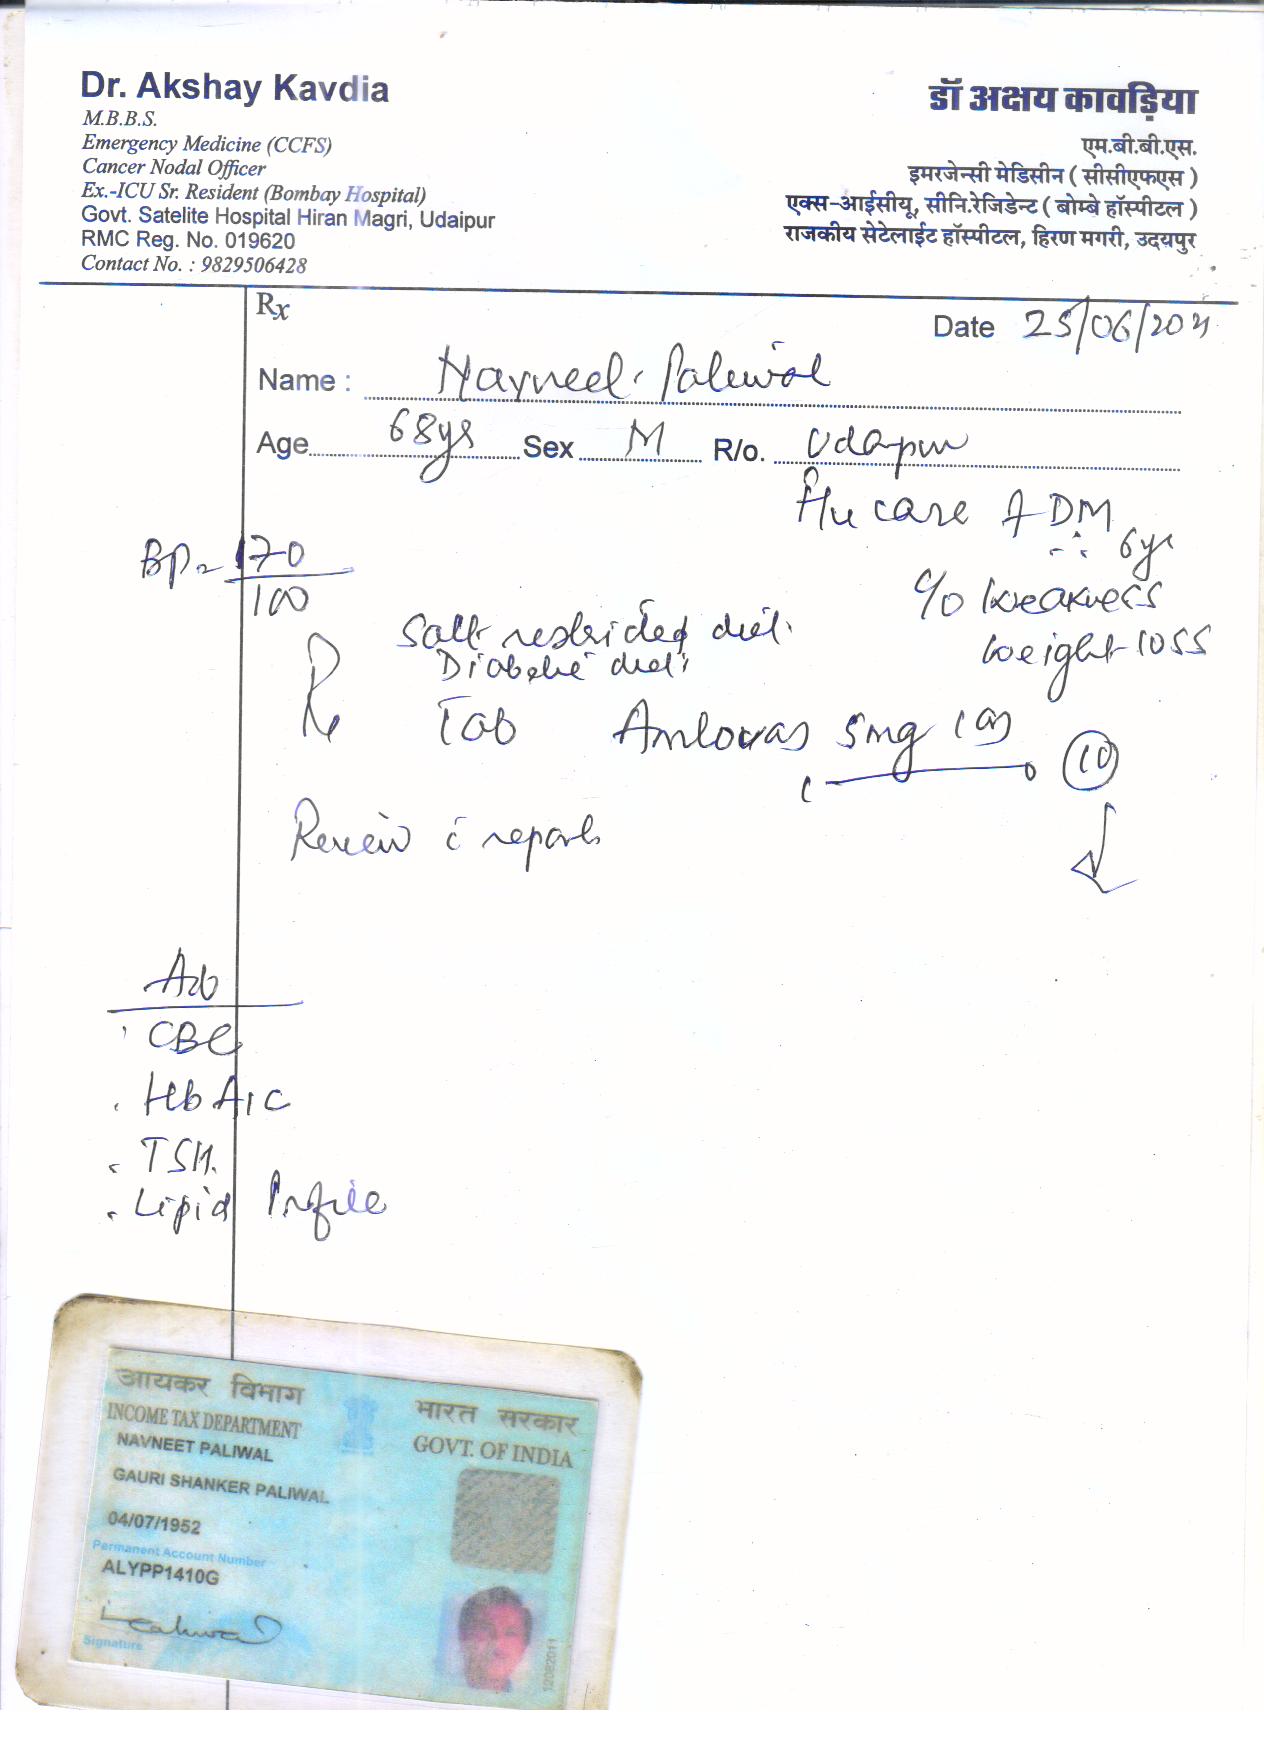 Dr. Akshay Kavdia
M.B.B.S.
Emergency Medicine (CCFS)
Cancer Nodal Officer
Ex.-ICU Sr. Resident (Bombay Hospital)
Govt. Satelite Hospital Hiran Magri, Udaipur
RMC Reg. No. 019620
Contact No. : 9829506428
डॉ अक्षय कावड़िया
एम.बी.बी.एस.
इमरजेन्सी मेडिसीन ( सीसीएफएस )
एक्स-आईसीयू, सीनि.रेजिडेन्ट ( बोम्बे हॉस्पीटल )
राजकीय सेटेलाईट हॉस्पीटल, हिरण मगरी, उदयपुर
Rx
Date 25/06/2021
Name : Navneet Paliwal
Age 68yrs Sex M R/o. Udaipur
case of DM
6yr
BP- 170/100
c/o weakness
weight loss
Salt restricted diet
Diabetic diet
Tab Amlovas 5mg
(10)
Review c reports
Adv
CBC
HbA1C
TSH.
Lipid Profile
आयकर विभाग
INCOME TAX DEPARTMENT
भारत सरकार
GOVT. OF INDIA
NAVNEET PALIWAL
GAURI SHANKER PALIWAL
04/07/1952
Permanent Account Number
ALYPP1410G
Signature
12082011